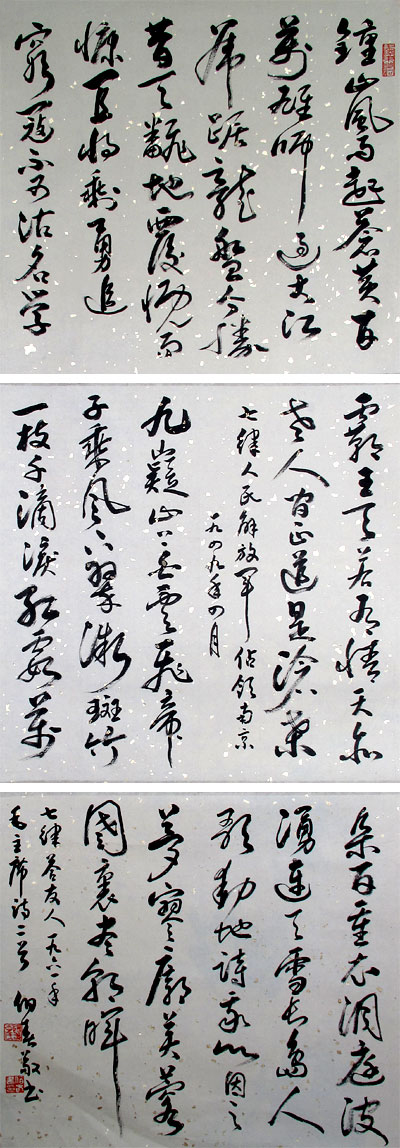 鍾山風雨起蒼黃百
萬雄師過大江
虎踞龍盤今勝
昔天翻地覆慨而
慷宜將剩勇追
窮寇不可沽名學
霸王天若有情天亦
老人間正道是滄桑
七律人民解放軍佔領南京
一九四九年四月
九嶷山上白雲飛帝
子乘風下翠微斑竹
一枝千滴淚紅霞萬
朵百重衣洞庭波
湧連天雪長島人
歌動地詩我欲因之
夢寥廓芙蓉
國裏盡朝暉
七律答友人一九六一年
毛主席詩二首 敬書